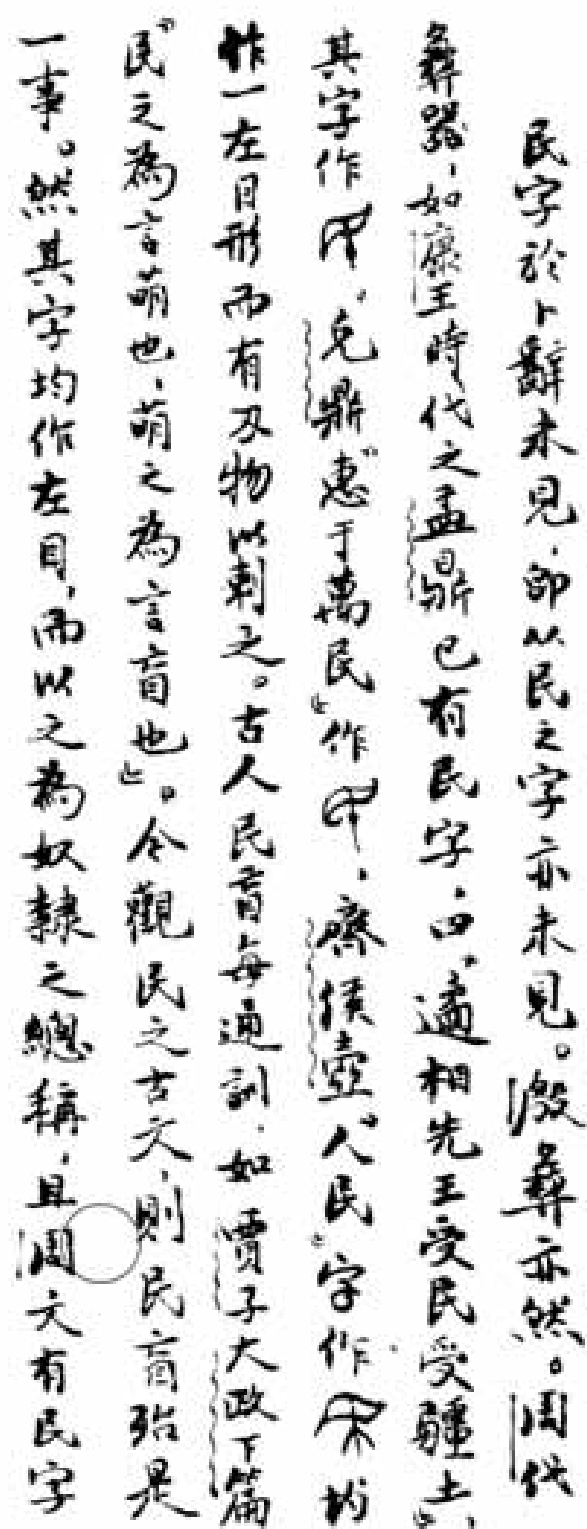 民字於卜辭未見，即从民之字亦未見。殷彝亦然。周代
彝器，如康王時代之盂鼎已有民字，曰“遹相先王受民受疆土”，
其字作，克鼎“惠于萬民”作，齊侯壺“人民”字作均
作一左目形而有刃物以刺之。古人民盲每通訓，如賈子大政下篇
“民之為言萌也，萌之為言盲也”。今觀民之古文，則民盲殆是
一事。然其字均作左目，而以之為奴隸之總稱，且周文有民字